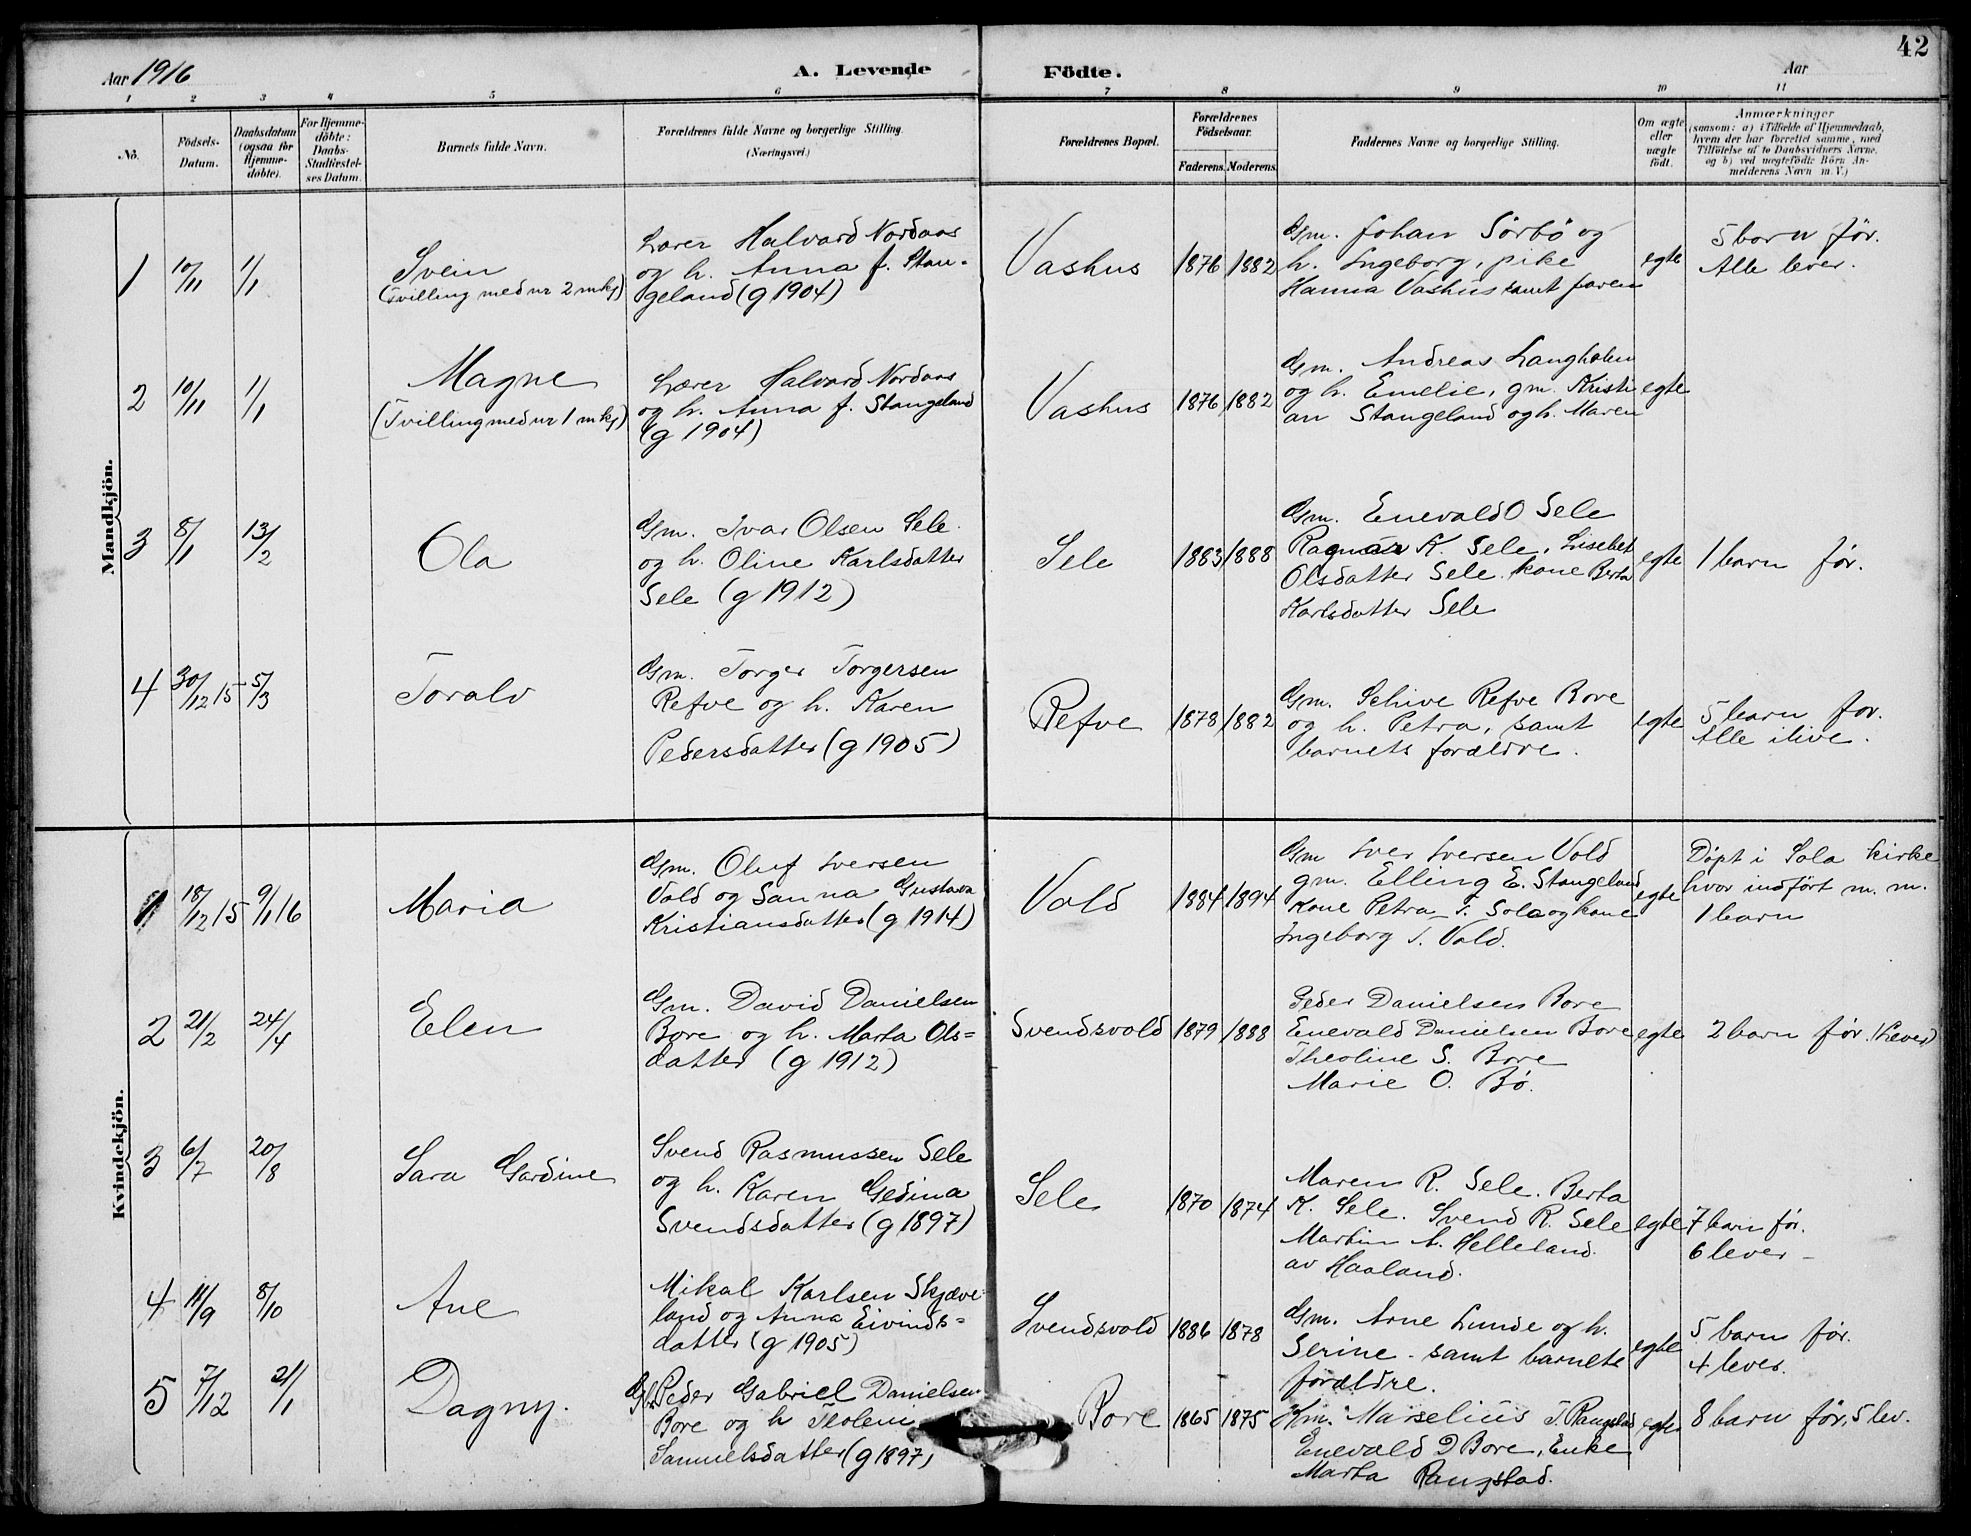 42
Aar 1916 A. Levende Födte. Aar
1 2 3 4 5 6 7 8 9 10 11
No. Födsels-Datum. Daabsdatum (ogsaa for Hjemme-döbte). For Hjemme-döbte: Daabs-Stadfæstel-ses Datum. Barnets fulde Navn. Forældrenes fulde Navne og borgerlige Stilling. (Næringsvei.) Forældrenes Bopæl. Forældrenes Födselsaar. Faderens. Moderens. Faddernes Navne og borgerlige Stilling. Om ægte eller uægte födt. Anmærkninger (saasom: a) i Tilfælde af Hjemmedaab, hvem der har forrettet samme, med Tilföielse af to Daabsvidners Navne, og b) ved uægtefödte Börn An-melderens Navn m. V.)
Mandkjön.
1 10/11 1/1 Svein
(Tvilling med nr 2 mkj)
Lærer Halvard Nordaas
og h. Anna f. Stan-
geland (g 1904)
Vashus 1876 1882
Gm. Johan Sörbö og
h. Ingeborg, pike
Hanna Vashus samt faren
egte
5 born før.
Alle lever.
2 10/11 1/1 Magne
(Tvilling med nr 1 mkj)
Lærer Halvard Nordaas
og h. Anna f. Stangeland
(g 1904)
Vashus 1876 1882
Gm. Andreas Langholen
og h. Emelie, gm. Kristi
an Stangeland og h. Maren
egte
3 8/1 13/2 Ola
Gm. Ivar Olsen Sele
og h. Oline Karlsdatter
Sele (g 1912)
Sele 1883 1888
Gm. Enevald O Sele
Ragnar K. Sele, Lisebet
Olsdatter Sele. kone Berta
Karlsdatter Sele
egte
1 barn før.
4 30/12 15 5/3 Toralv
Gm. Torger Torgersen
Refve og h. Karen
Pedersdatter (g 1905)
Refve 1878 1882
Gm. Schive Refve Bore
og h. Petra, samt
barnets forældre.
egte
5 barn før.
Alle ilive.
Kvindekjön.
1 18/12 15 9/1 16 Maria
Gm. Oluf Iversen
Vold og Sanna Gustava
Kristiansdatter (g 1914)
Vold 1884 1894
Gm Iver Iversen Vold
gm. Elling E. Stangeland
Kone Petra T. Sola og kone
Ingeborg I. Vold.
egte
Døpt i Sola kirke
hvor indført m. m.
1 barn
2 21/2 24/4 Elen
Gm. David Danielsen
Bore og h. Marta Ols=
datter (g 1912)
Svendsvold 1879 1888
Peder Danielsen Bore
Enevald Danielsen Bore
Theoline S. Bore
Marie O. Bö.
egte
2 barn før. (lever)
3 6/7 20/8 Sara Gardine
Svend Rasmussen Sele
og h. Karen Gedina
Svendsdatter (g 1897)
Sele 1870 1874
Maren R. Sele. Berta
K. Sele. Svend R. Sele
Martin A. Helleland
av Haaland.
egte
7 barn før.
6 lever -
4 11/9 8/10 Ane
Mikal Karlsen Skjæve-
land og Anna Eivinds=
datter (g 1905)
Svendsvold 1886 1878
Gm. Arne Lunde og h.
Serine - samt barnets
forældre.
egte
5 barn før.
4 lever.
5 7/12 21/1 Dagny.
Gbr. Peder Gabriel Danielsen
Bore og h
Samuelsdatter (g 1897)
Bore 1865 1875
Km. Marselius T. Rangstad
Enevald D Bore, Enke
Marta Rangstad.
egte
8 barn før, 5 lev.